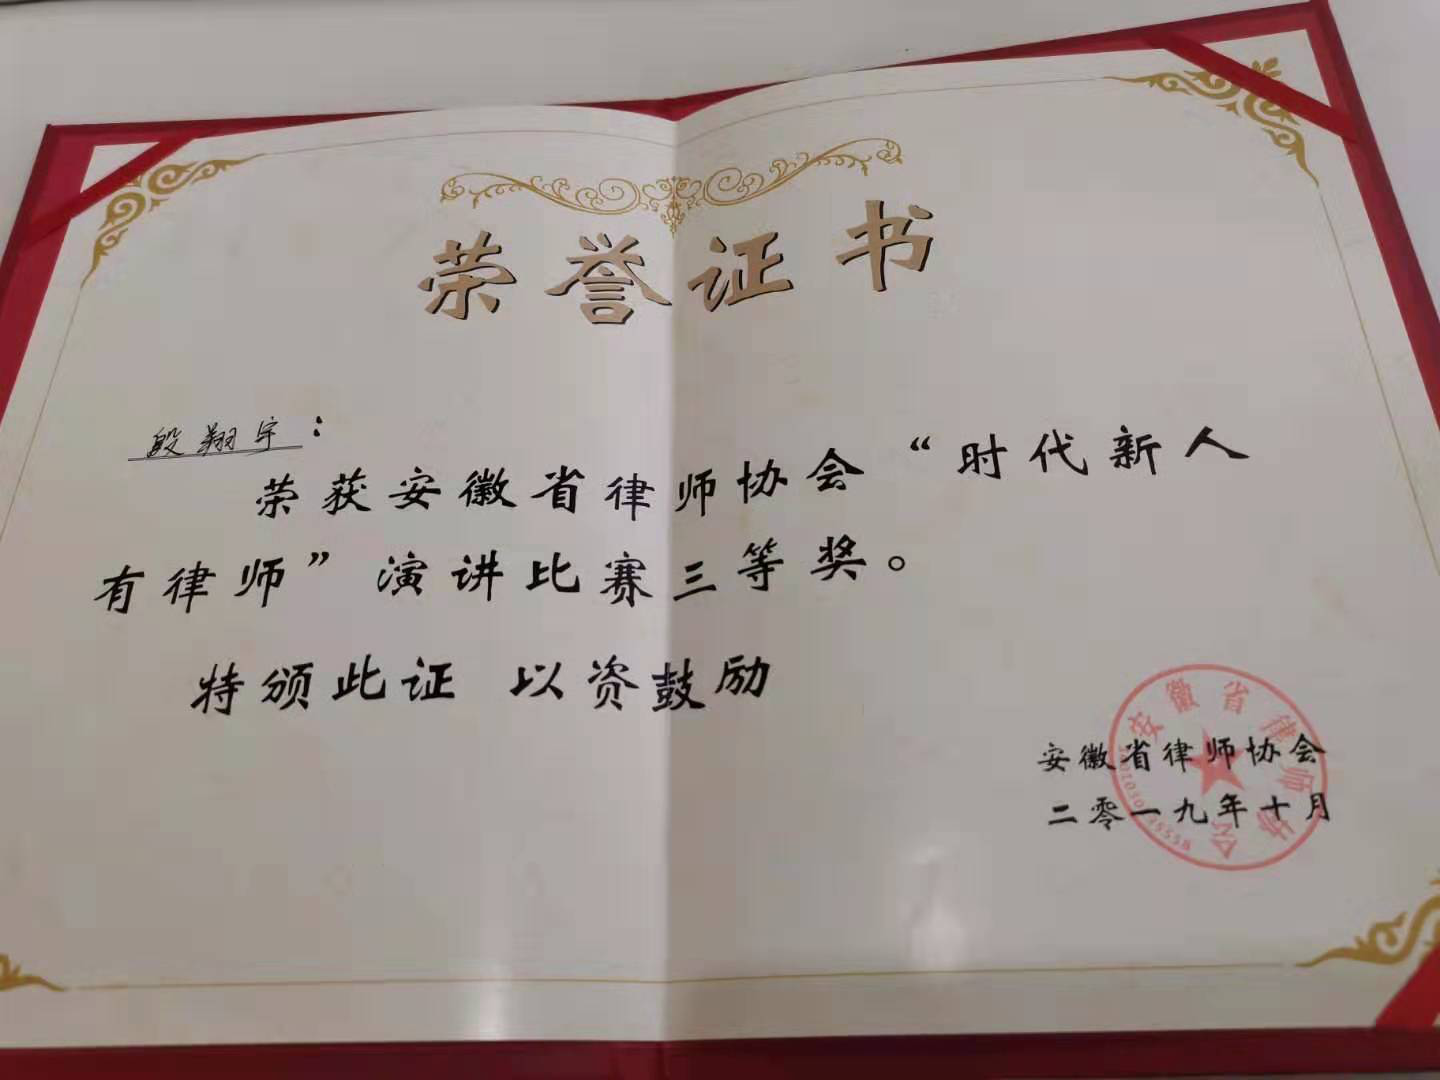 荣誉证书
殷翔宇：
荣获安徽省律师协会“时代新人
有律师”演讲比赛三等奖。
特颁此证 以资鼓励
安徽省律师协会
二零一九年十月
安徽省律师协会